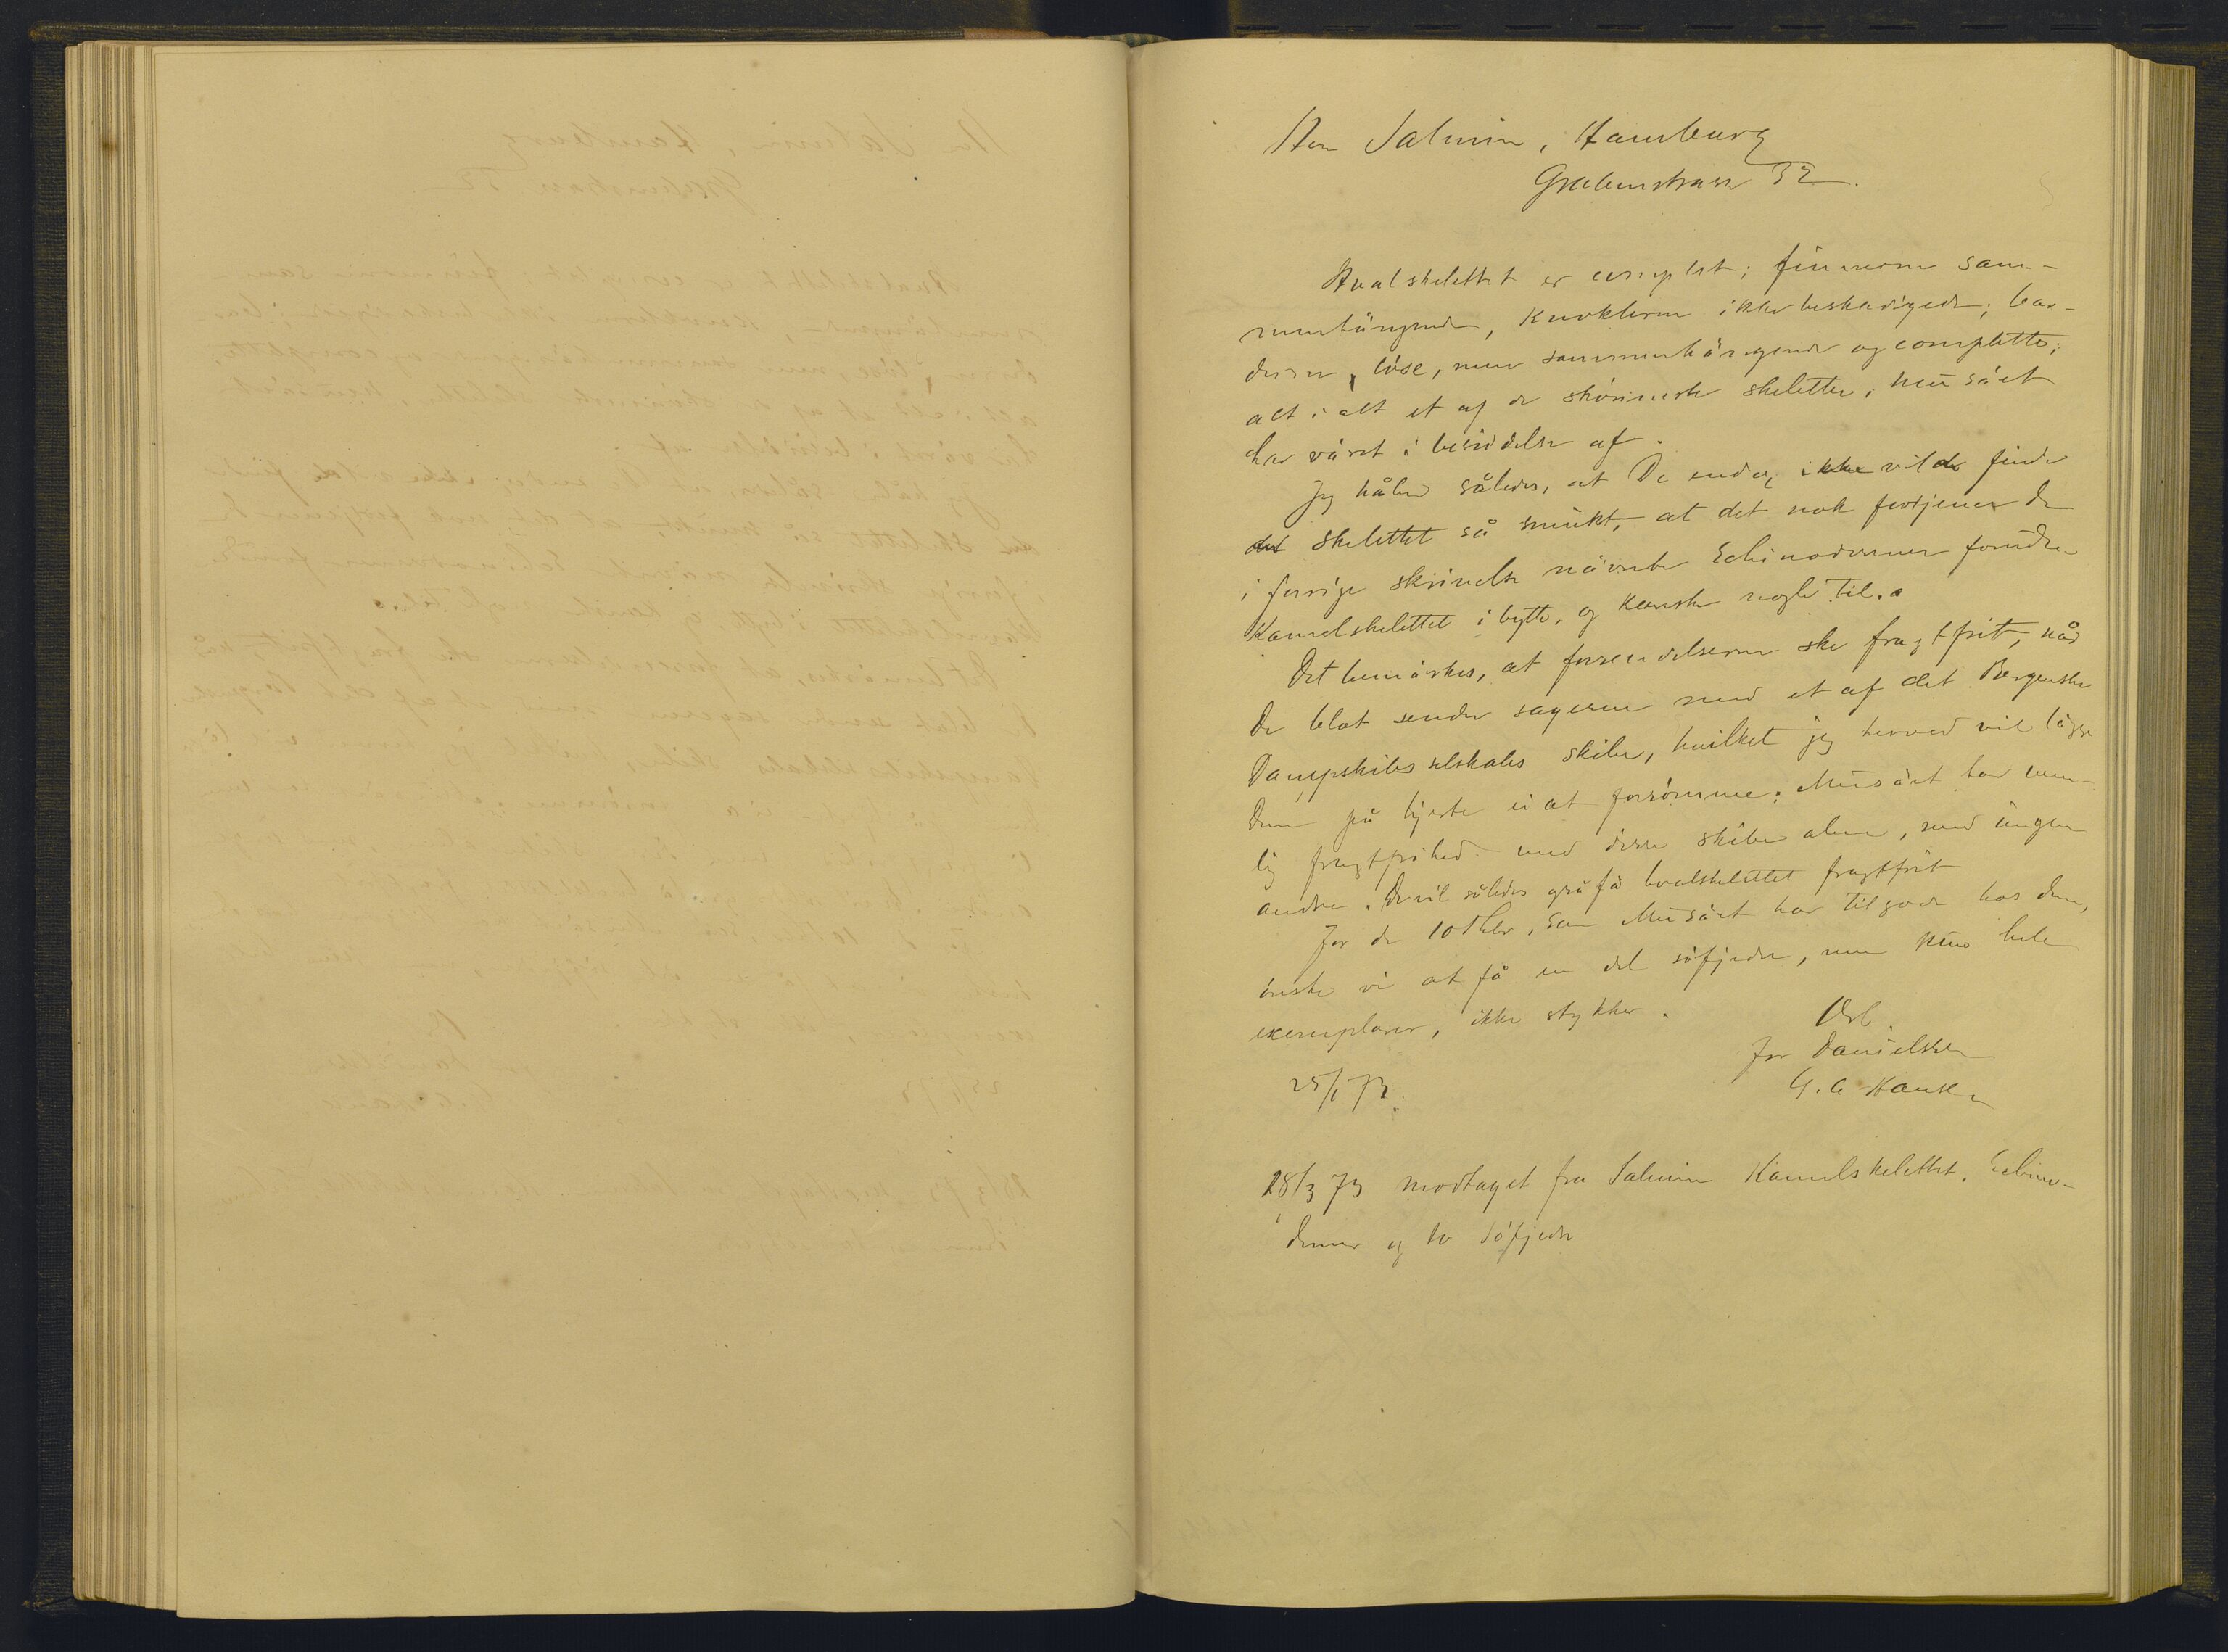 Herr Salmin, Hamburg
Grabenstrasse 32.
Hvalskelettet er complet; finnerne sam-
menhängende, knoklerne ikke beskadigede; bar-
derne löse, men sammenhängende og complette;
alt i alt et af de skönneste skeletter, museet
har väret i besiddelse af.
Jeg håber således, at De endog ikke vilde finde
det skelettet så smukt, at det nok fortjener de
i forrige skrivelse nävnte Echinodermer foruden
Kamelskelettet i bytte, og kanske nogle til.
Det bemärkes, at forsendelserne ske fragtfrit, når
De blot sender sagerne med et af det Bergenske
Dampskibsselskabs skibe, hvilket jeg herved vil lägge
Dem på hjerte ei at forsömme; Museet har nem-
lig fragtfrihed med disse skibe alene, med ingen
andre. De vil således også få hvalskelettet fragtfrit
For de 10 thlr, som Museet har tilgode hos dem,
önske vi at få en del söfjedre, men kun hele
exemplarer, ikke stykker.
Örb.
for Danielssen
G. A Hansen
25/1 73.
28/3 73 modtaget fra Salmin Kamelskelettet, Echino-
dermer og to Söfjedre